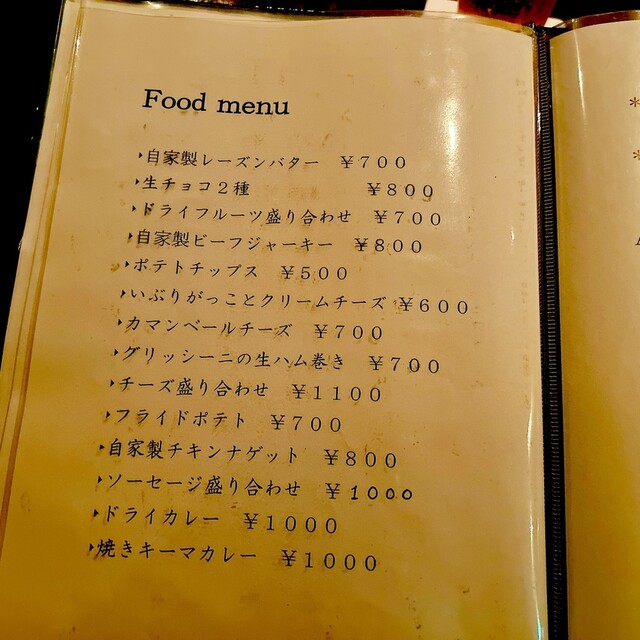 Food menu
自家製レーズンバター ￥７００
生チョコ２種 ￥８００
ドライフルーツ盛り合わせ ￥７００
自家製ビーフジャーキー ￥８００
ポテトチップス ￥５００
いぶりがっことクリームチーズ ￥６００
カマンベールチーズ ￥７００
グリッシーニの生ハム巻き ￥７００
チーズ盛り合わせ ￥１１００
フライドポテト ￥７００
自家製チキンナゲット ￥８００
ソーセージ盛り合わせ ￥１０００
ドライカレー ￥１０００
焼きキーマカレー ￥１０００